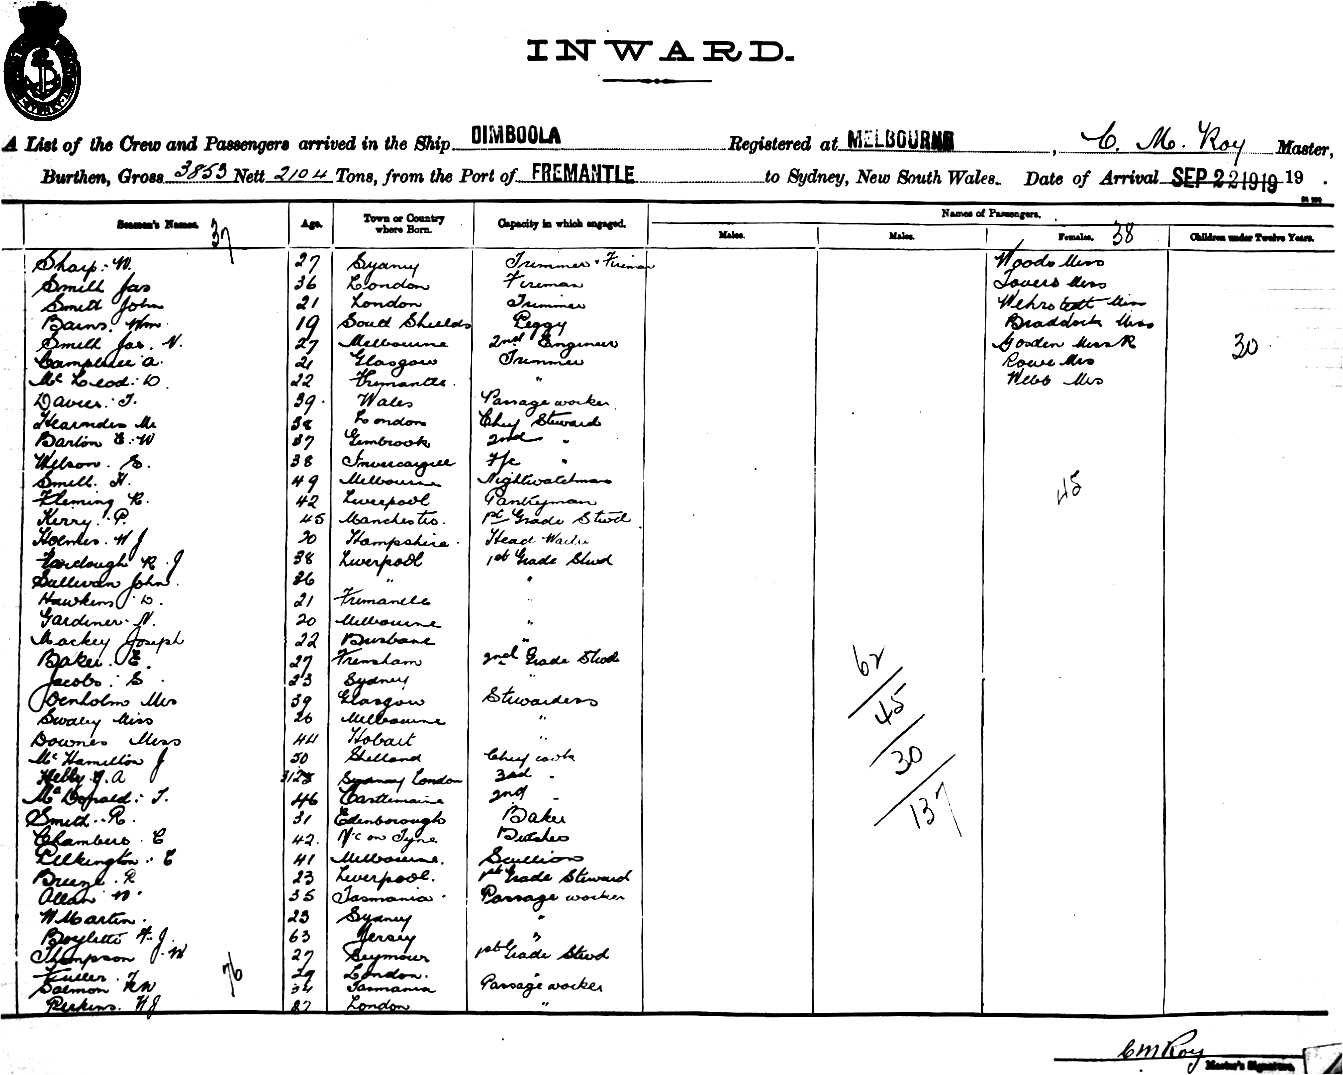 INWARD.
A List of the Crew and Passengers arrived in the Ship DIMBOOLA Registered at MELBOURNE, C. M. Roy Master,
Burthen, Gross 3853 Nett 2104 Tons, from the Port of FREMANTLE to Sydney, New South Wales. Date of Arrival SEP 22 1919 19 .
Names of Passengers.
Seamen's Names. 37 Age. Town or Country where Born. Capacity in which engaged. Males. Males. Females. 38 Children under Twelve Years.
Sharp. W. 27 Sydney Trimmer & Fireman Woods Miss
Smith Jas 36 London Fireman Towers Miss
Smith John 21 London Trimmer Wehrstedt Miss
Bains. Wm. 19 South Shields Peggy Braddock Miss
Smith Jas. N. 27 Melbourne 2nd Engineer Gordon Miss R 30
Campbell A. 21 Glasgow Trimmer Rowe Mrs
Mc Leod. D. 22 Fremantle. " Webb Mrs
Davies. T. 39. Wales Passage worker.
38 London Chief Steward
Barton E. W 37 Gembrook 2nd "
Wilson. E. 38 Invercargill F/c "
Smith. H. 49 Melbourne Nightwatchman
Fleming R. 42 Liverpool Pantryman 45
Kerry. P. 45 Manchester. 1st Grade Stwd
Holmes. W J 20 Hampshire. Head Waiter
Fairclough R. J 38 Liverpool 1st Grade Stwd
Sullivan John. 26 " "
Hawkins D. 21 Fremantle
Gardiner. N. 20 Melbourne "
Mackey Joseph 22 Brisbane "
Baker. E. 27 Frensham 2nd Grade Stwd 62
Jacobs. S 23 Sydney "
Denholm Mrs 39 Glasgow Stewardess 45
Swaley Miss 26 Melbourne "
Downes Miss 44 Hobart "
Mc Hamilton J 50 Shetland Chief cook 30
Hebby J. A 3128 Sydney London 3rd "
Mc Donald. T. 46 Castlemaine 2nd " 137
Smith. R. 31 Edenborough Baker
Chambers. C 42. N/c on Tyne Butcher
Pilkington. C 41 Melbourne. Scullion
Breeze. R 23 Liverpool. 1st Grade Steward
Allan W. 35 Tasmania. Passage worker
W Martin. 23 Sydney "
63 Jersey "
Thompson J. W 27 Seymour 1st Grade Stwd
Fuller. F 76 29 London. "
Salmon 34 Tasmania Passage worker
Perkins. H J London "
C M Roy
Master's Signature.